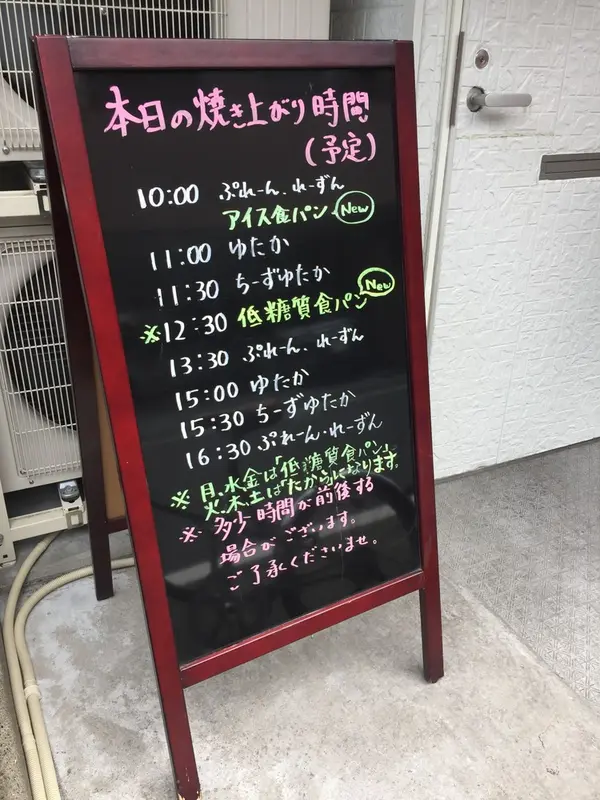 本日の焼き上がり時間
(予定)
10:00 ぷれーん、れーずん
アイス食パン New
11:00 ゆたか
11:30 ちーずゆたか
※12:30 低糖質食パン New
13:30 ぷれーん、れーずん
15:00 ゆたか
15:30 ちーずゆたか
16:30 ぷれーん・れーずん
※月、水金は「低糖質食パン」
火、木、土は「たから」になります。
※多少時間が前後する
場合がございます。
ご了承くださいませ。